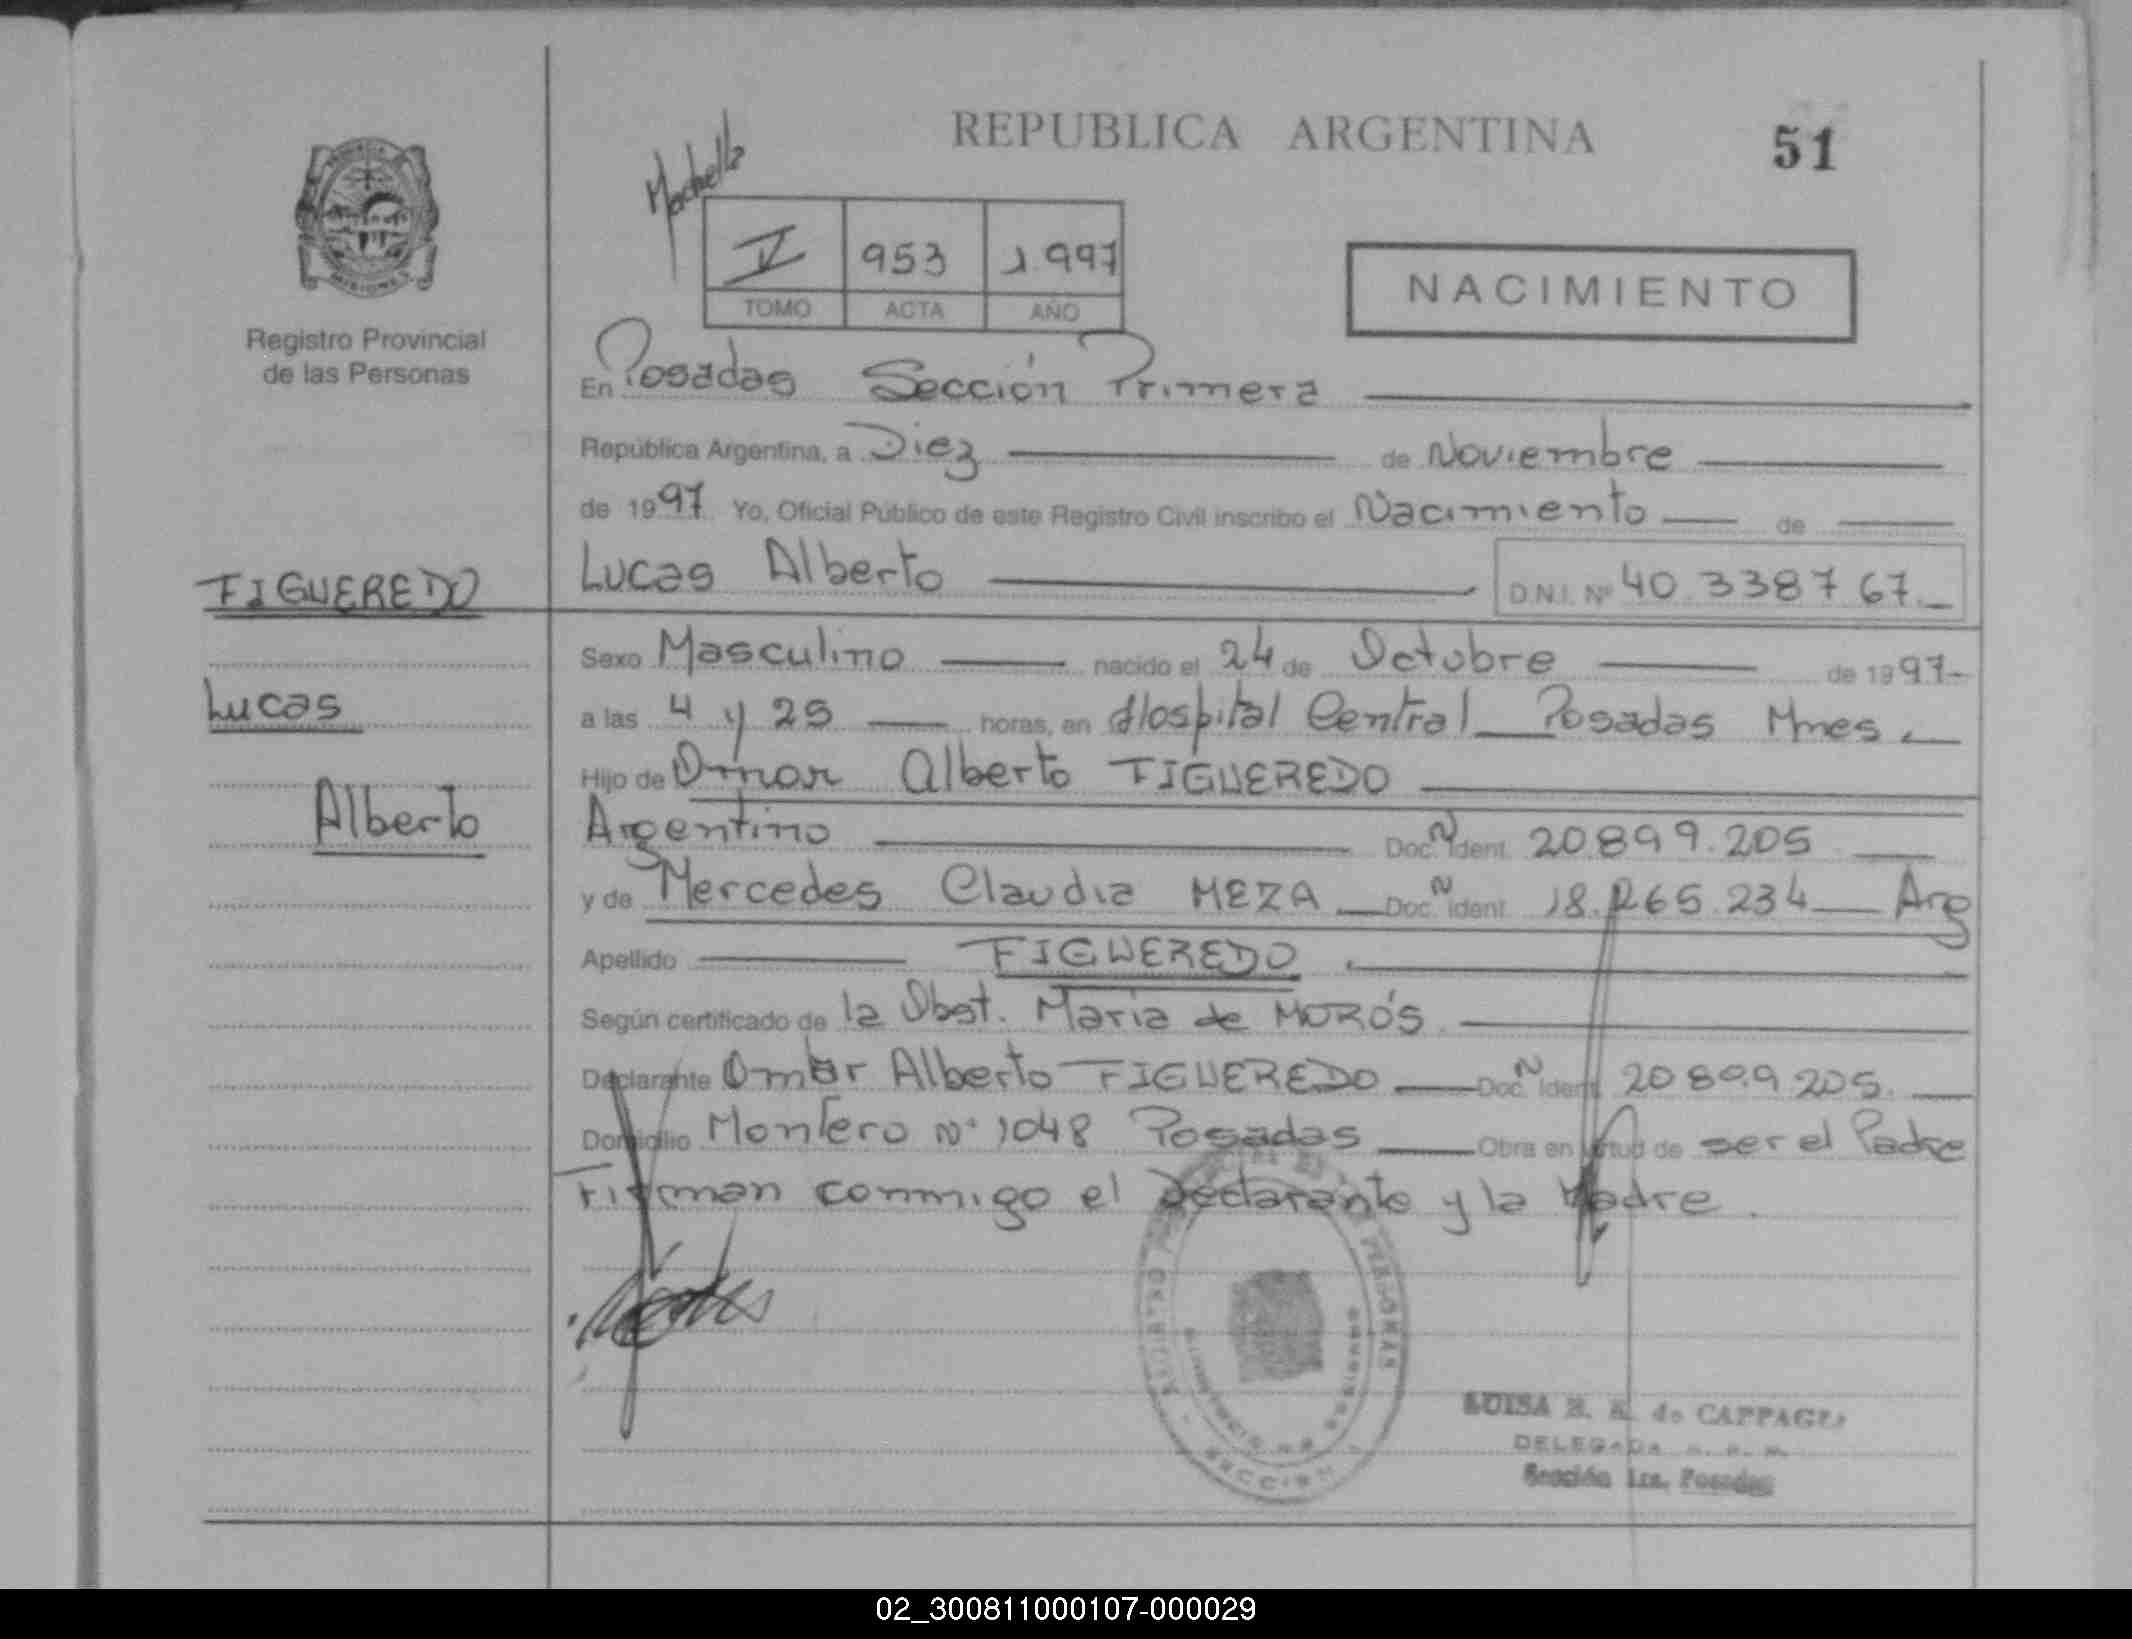 REPUBLICA ARGENTINA
51
V 953 1.997
TOMO ACTA AÑO
NACIMIENTO
MISIONES
Registro Provincial
de las Personas
En Posadas Sección Primera
República Argentina, a Diez de Noviembre
de 1997 Yo, Oficial Público de este Registro Civil inscribo el Nacimiento de
Lucas Alberto D.N.I. Nº 40.338767.
FIGUEREDO
Lucas
Alberto
Sexo Masculino nacido el 24 de Octubre de 1997
a las 4 y 25 horas, en Hospital Central Posadas Mnes.
Hijo de Omar Alberto FIGUEREDO
Argentino Doc. N Ident. 20.899.205
y de Mercedes Claudia MEZA Doc. N Ident. 18. 265.234 Arg
Apellido FIGUEREDO.
Según certificado de la Obst. Maria de MOROS
Declarante Omar Alberto FIGUEREDO Doc. N Ident. 20.899.205.
Domicilio Montero Nº 1048 Posadas Obra en virtud de ser el Padre
Firman conmigo el Declarante y la Madre.
PERSONAS
LUISA de CAPPAGLI
DELEGADA
Sección 1ra. Posadas
02_300811000107-000029